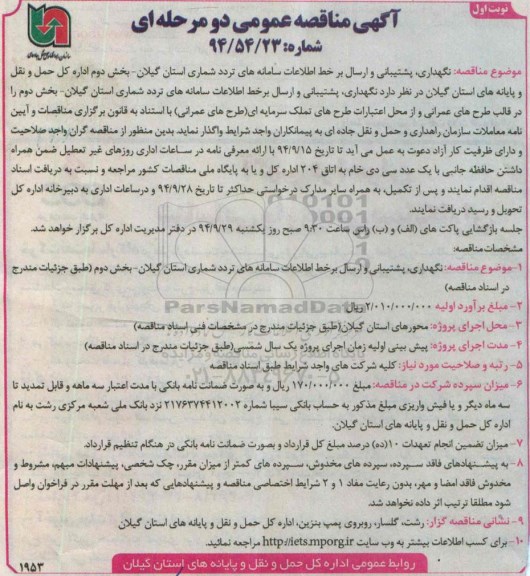 نوبت اول
آگهی مناقصه عمومی دو مرحله ای
شماره: ۹۴/۵۴/۲۳
موضوع مناقصه: نگهداری، پشتیبانی و ارسال بر خط اطلاعات سامانه های تردد شماری استان گیلان- بخش دوم اداره کل حمل و نقل
و پایانه های استان گیلان در نظر دارد نگهداری، پشتیبانی و ارسال برخط اطلاعات سامانه های تردد شماری استان گیلان- بخش دوم را
در قالب طرح های عمرانی و از محل اعتبارات طرح های تملک سرمایه ای(طرح های عمرانی) با استناد به قانون برگزاری مناقصات و آیین
نامه معاملات سازمان راهداری و حمل و نقل جاده ای به پیمانکاران واجد شرایط واگذار نماید. بدین منظور از مناقصه گران واجد صلاحیت
و دارای ظرفیت کار آزاد دعوت به عمل می آید تا تاریخ ۹۴/۹/۱۵ با ارائه معرفی نامه در ساعات اداری روزهای غیر تعطیل ضمن همراه
داشتن حافظه جانبی با یک عدد سی دی خام به اتاق ۲۰۴ اداره کل و یا به پایگاه ملی مناقصات کشور مراجعه و نسبت به دریافت اسناد
مناقصه اقدام نمایند و پس از تکمیل، به همراه سایر مدارک درخواستی حداکثر تا تاریخ ۹۴/۹/۲۸ و درساعات اداری به دبیرخانه اداره کل
تحویل و رسید دریافت نمایند.
جلسه بازگشایی پاکت های (الف) و (ب) راس ساعت ۹:۳۰ صبح روز یکشنبه ۹۴/۹/۲۹ در دفتر مدیریت اداره کل برگزار خواهد شد.
مشخصات مناقصه:
۱-موضوع مناقصه: نگهداری، پشتیبانی و ارسال برخط اطلاعات سامانه های تردد شماری استان گیلان- بخش دوم (طبق جزئیات مندرج
در اسناد مناقصه)
۲- مبلغ برآورد اولیه ۲/۰۱۰/۰۰۰/۰۰۰ ریال
۳- محل اجرای پروژه: محورهای استان گیلان(طبق جزئیات مندرج در مشخصات فنی اسناد مناقصه)
۴- مدت اجرای پروژه: پیش بینی اولیه زمان اجرای پروژه یک سال شمسی(طبق جزئیات مندرج در اسناد مناقصه)
۵- رتبه و صلاحیت مورد نیاز: کلیه شرکت های واجد شرایط طبق اسناد مناقصه
۶- میزان سپرده شرکت در مناقصه: مبلغ ۱۷۰/۰۰۰/۰۰۰ ریال و به صورت ضمانت نامه بانکی با مدت اعتبار سه ماهه و قابل تمدید تا
سه ماه دیگر و یا فیش واریزی مبلغ مذکور به حساب بانکی سیبا شماره ۲۱۷۶۳۷۴۴۱۲۰۰۲ نزد بانک ملی شعبه مرکزی رشت به نام
اداره کل حمل و نقل و پایانه های استان گیلان.
۷- میزان تضمین انجام تعهدات ۱۰(ده) درصد مبلغ کل قرارداد و بصورت ضمانت نامه بانکی در هنگام تنظیم قرارداد.
۸- به پیشنهادهای فاقد سپرده، سپرده های مخدوش، سپرده های کمتر از میزان مقرر، چک شخصی، پیشنهادات مبهم، مشروط و
مخدوش فاقد امضا و مهر، بدون رعایت مفاد ۱ و ۲ شرایط اختصاصی مناقصه و پیشنهادهایی که بعد از مهلت مقرر در فراخوان واصل
شود مطلقا ترتیب اثر داده نخواهد شد.
۹- نشانی مناقصه گزار: رشت، گلسار، روبروی پمپ بنزین، اداره کل حمل و نقل و پایانه های استان گیلان
۱۰- برای کسب اطلاعات بیشتر به وب سایت http://iets.mporg.ir مراجعه نمائید.
روابط عمومی اداره کل حمل و نقل و پایانه های استان گیلان
۱۹۵۳